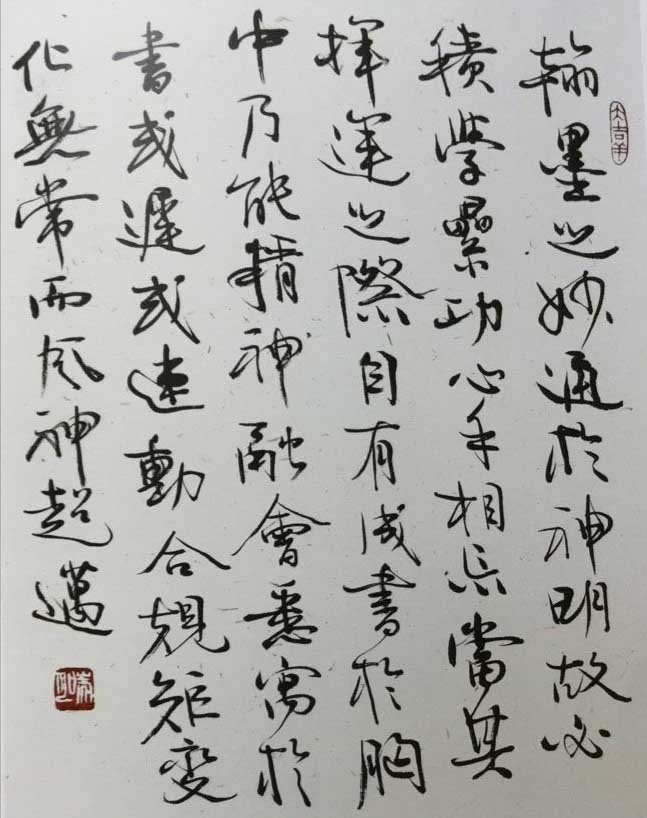 翰墨之妙通於神明故必
積學累功心手相忘當其
揮運之際自有成書於胸
中乃能精神融會悉寓於
書或遲或速動合規矩變
化無常而风神超邁
大吉羊